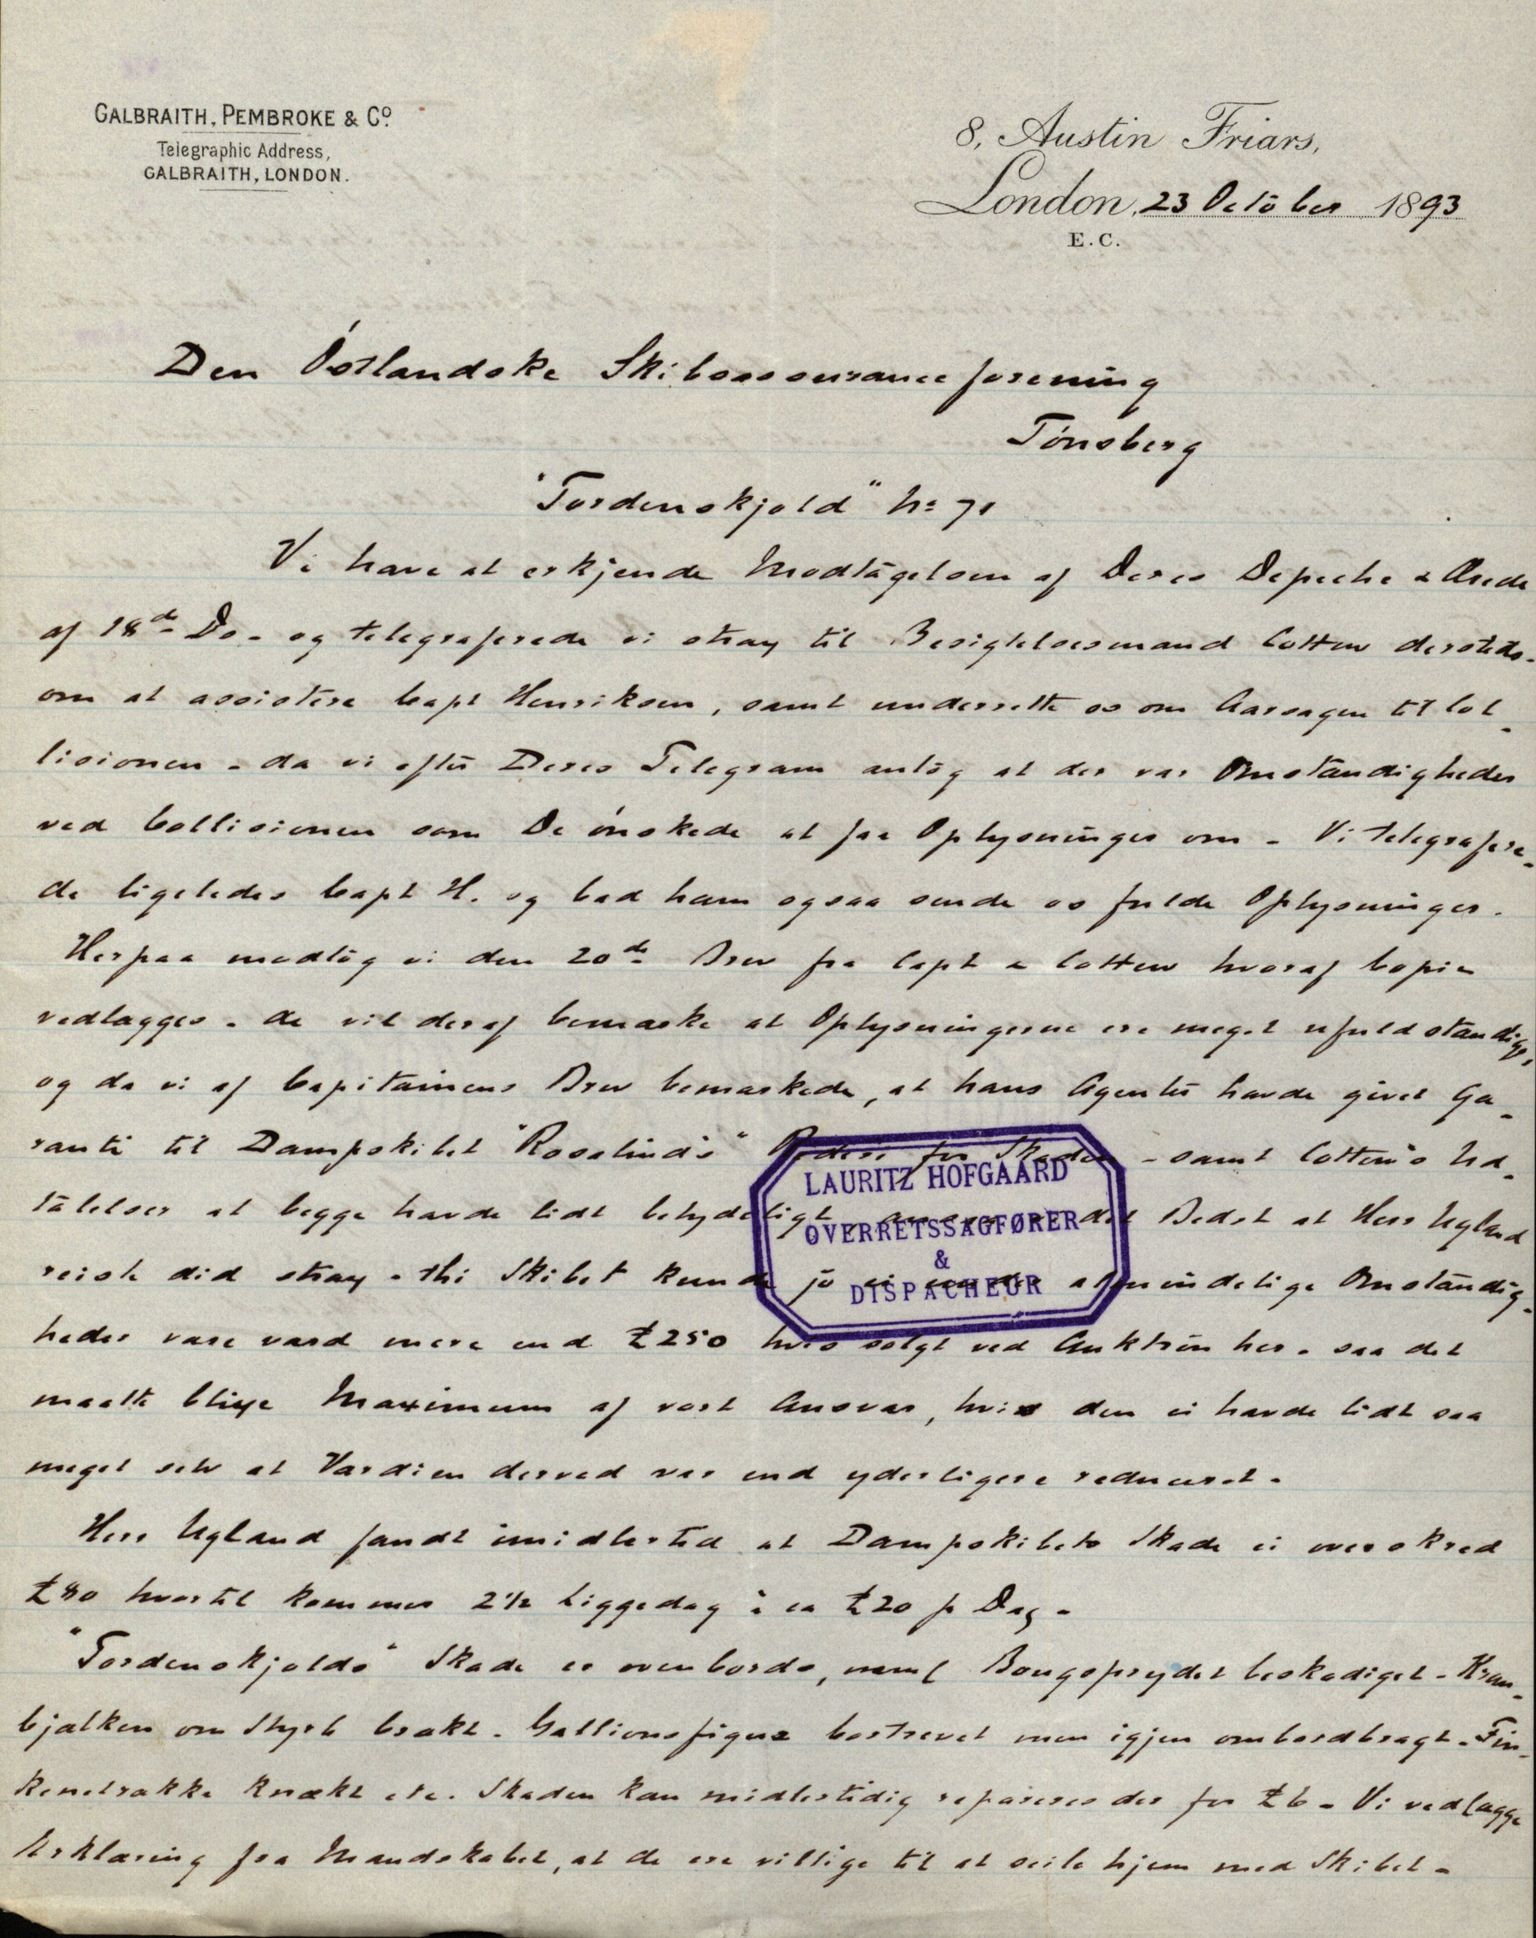 GALBRAITH, PEMBROKE & Cº
Telegraphic Address,
GALBRAITH, LONDON.
8, Austin Friars,
London, 23 October 1893
E.C.
Den Östlandske Skibsassuranceforening
Tönsberg
"Tordenskjold" No 71
Vi have at erkjende Modtagelsen af Deres Depeche & Ærede
af 18de Ds. og telegraferede vi strax til Besigtelsesmand Cotten dersteds
om at assistere Capt Henriksen, samt underrette os om Aarsagen til Col-
lisionen - da vi efter Deres Telegram antog at der var Omstændigheder
ved Collisionen som De önskede at faa Oplysninger om - Vi telegrafere-
de ligeledes Capt H. og bad ham ogsaa sende os fulde Oplysninger.
Herpaa modtog vi den 20de Brev fra Capt & Cotten hvoraf Copie
vedlægges - de vil deraf bemærke at Oplysningerne ere meget ufuldstændige,
og da vi af Capitainens Brev bemærkede, at hans Agenter havde givet Ga-
ranti til Dampskibet "Rosalind's" Rederi for Skaden - samt Cotten's Ud-
talelser at begge havde lidt betydeligt det Bedst at Herr Ugland
reiste did strax - thi Skibet kunde jo ei under almindelige Omstændig-
heder være værd mere end £250 hvis solgt ved Auktion her - saa det
maatte blive Maximum af vort Ansvar, hvis den ei havde lidt saa
meget selv at Værdien derved var end yderligere reduceret.
Herr Ugland fandt imidlertid at Dampskibets Skade ei overskred
£80 hvortil kommer 2½ Liggedag à ca £20 p Dag -
"Tordenskjolds" Skade er ovenbords, neml Bougsprydet beskadiget - Kran-
bjælken om Styrb brækt - Gallionsfigur bortrevet men igjen ombordbragt - Fin-
kenetrække knækt etc. Skaden kan midlertidig repareres der for £6 - Vi vedlægge
Erklæring fra Mandskabet, at de ere villige til at seile hjem med Skibet -
LAURITZ HOFGAARD
OVERRETSSAGFØRER
&
DISPACHEUR